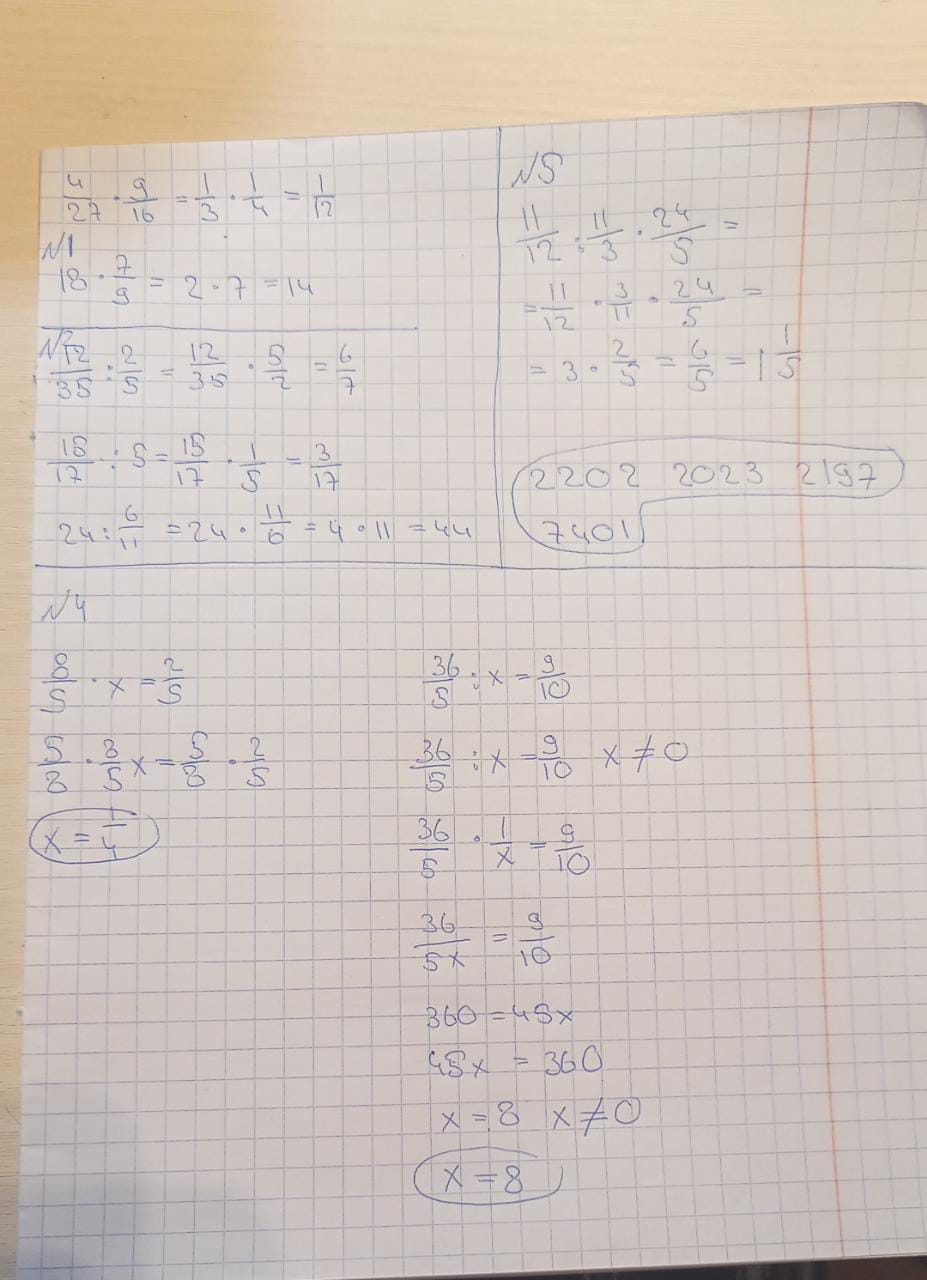 4/27 · 9/16 = 1/3 · 1/4 = 1/12
№1
18 · 7/9 = 2 · 7 = 14
№2
12/35 : 2/5 = 12/35 · 5/2 = 6/7
15/17 : 5 = 15/17 · 1/5 = 3/17
24 : 6/11 = 24 · 11/6 = 4 · 11 = 44
№5
11/12 : 11/3 · 24/5 =
= 11/12 · 3/11 · 24/5 =
= 3 · 2/5 = 6/5 = 1 1/5
2202 2023 2197
7401
№4
8/5 · x = 2/5
5/8 · 8/5 x = 5/8 · 2/5
x = 1/4
36/5 : x = 9/10
36/5 : x = 9/10 x ≠ 0
36/5 · 1/x = 9/10
36/5x = 9/10
360 = 45x
45x = 360
x = 8 x ≠ 0
x = 8